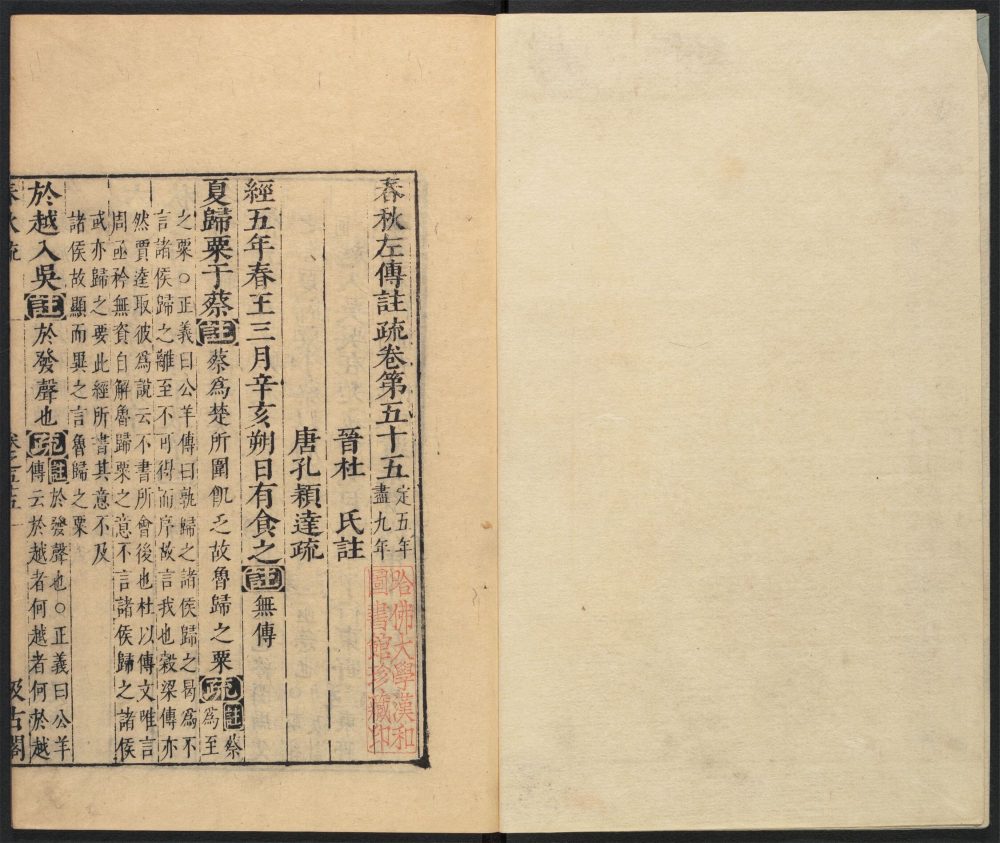 春秋左傳註疏卷第五十五 定五年
盡九年
哈佛大學漢和
圖書館珍藏印
晉杜 氏註
唐孔穎達疏
經五年春王三月辛亥朔日有食之註無傳
夏歸粟于蔡註蔡爲楚所圍飢乏故魯歸之粟疏註蔡
爲至
之粟○正義曰公羊傳曰孰歸之諸侯歸之曷爲不
言諸侯歸之離至不可得而序故言我也穀梁傳亦
然賈逵取彼爲說云不書所會後也杜以傳文唯言
周亟矜無資自解魯歸粟之意不言諸侯歸之諸侯
或亦歸之要此經所書其意不及
諸侯故顯而異之言魯歸之粟
於越入吳註於發聲也疏註於發聲也○正義曰公羊
傳云於越者何越者何於越
春秋疏 卷之五十五 一 汲古閣